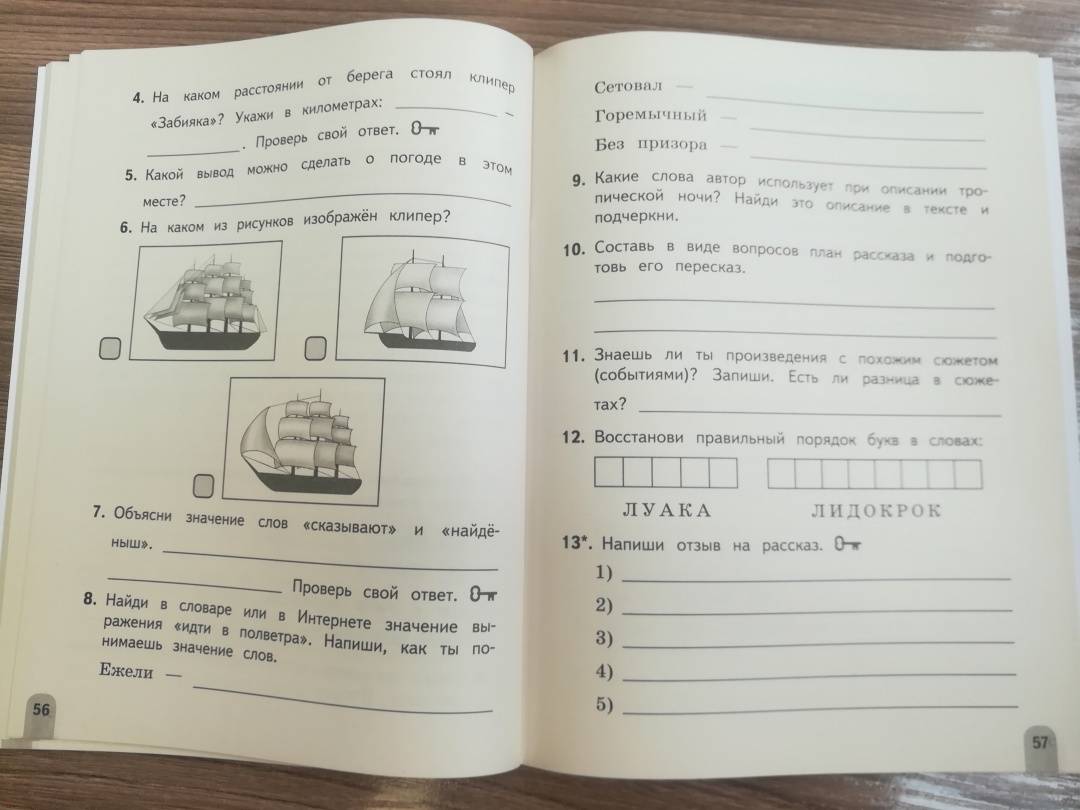 4. На каком расстоянии от берега стоял клипер
«Забияка»? Укажи в километрах:
. Проверь свой ответ.
5. Какой вывод можно сделать о погоде в этом
месте?
6. На каком из рисунков изображён клипер?
7. Объясни значение слов «сказывают» и «найдё-
ныш».
Проверь свой ответ.
8. Найди в словаре или в Интернете значение вы-
ражения «идти в полветра». Напиши, как ты по-
нимаешь значение слов.
Ежели —
56
Сетовал —
Горемычный —
Без призора —
9. Какие слова автор использует при описании тро-
пической ночи? Найди это описание в тексте и
подчеркни.
10. Составь в виде вопросов план рассказа и подго-
товь его пересказ.
11. Знаешь ли ты произведения с похожим сюжетом
(событиями)? Запиши. Есть ли разница в сюже-
тах?
12. Восстанови правильный порядок букв в словах:
ЛУАКА ЛИДОКРОК
13*. Напиши отзыв на рассказ.
1)
2)
3)
4)
5)
57